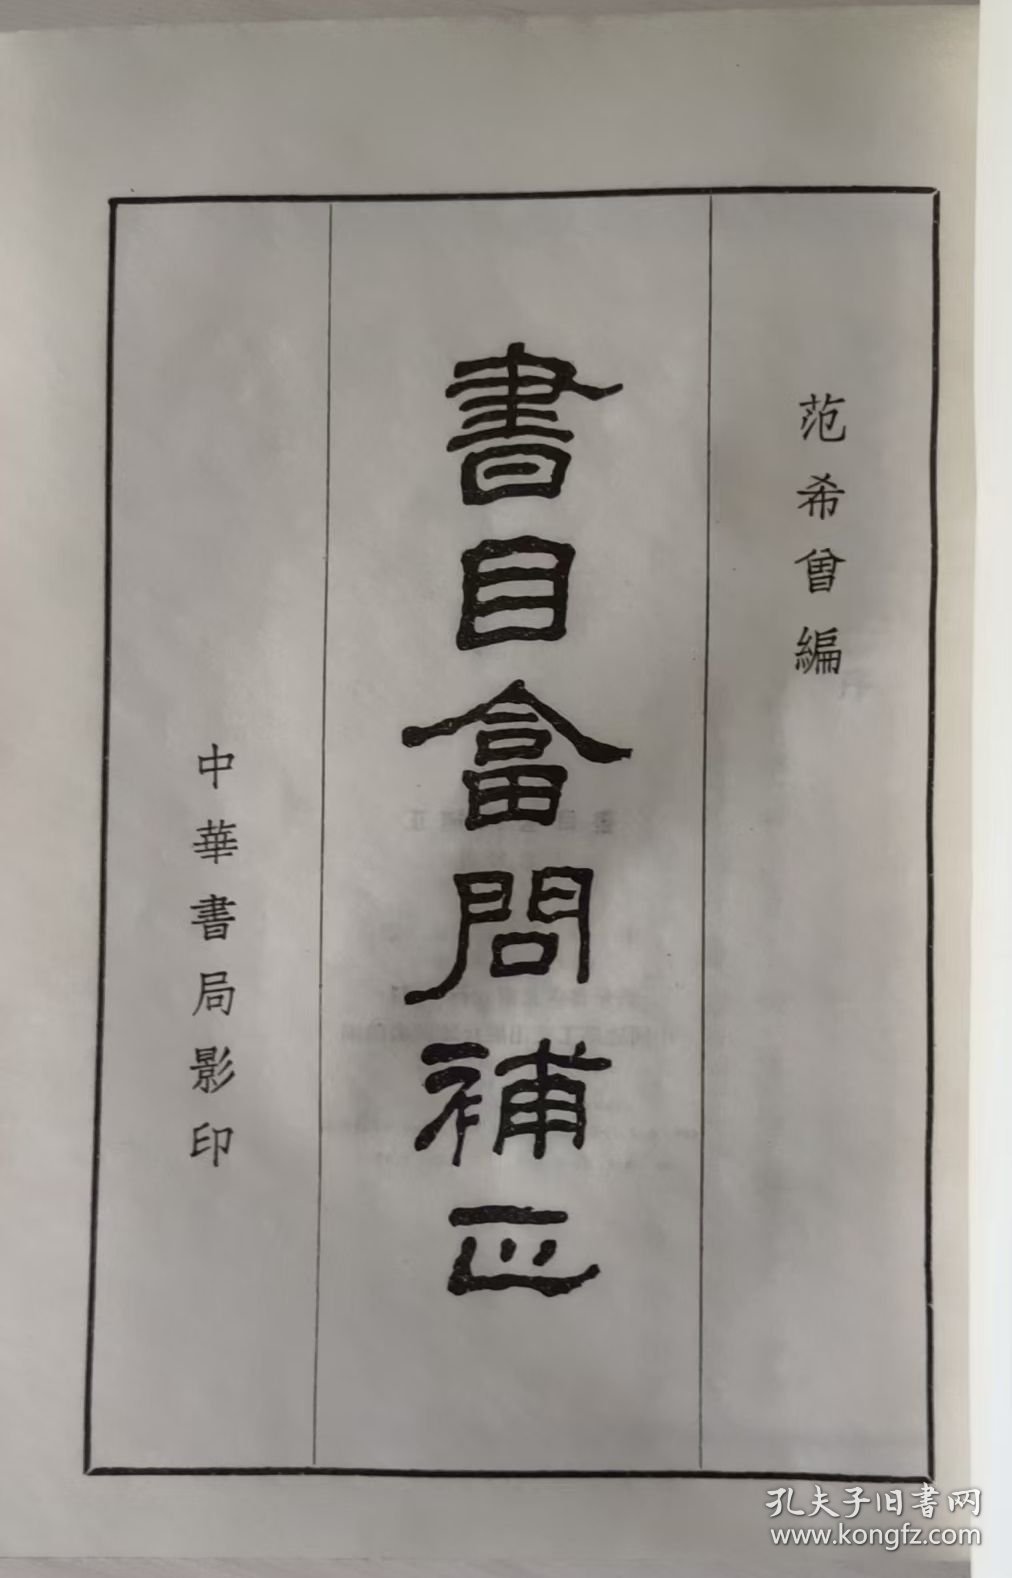 范希曾編
書目畣問補正
中華書局影印
孔夫子旧書网
www.kongfz.com